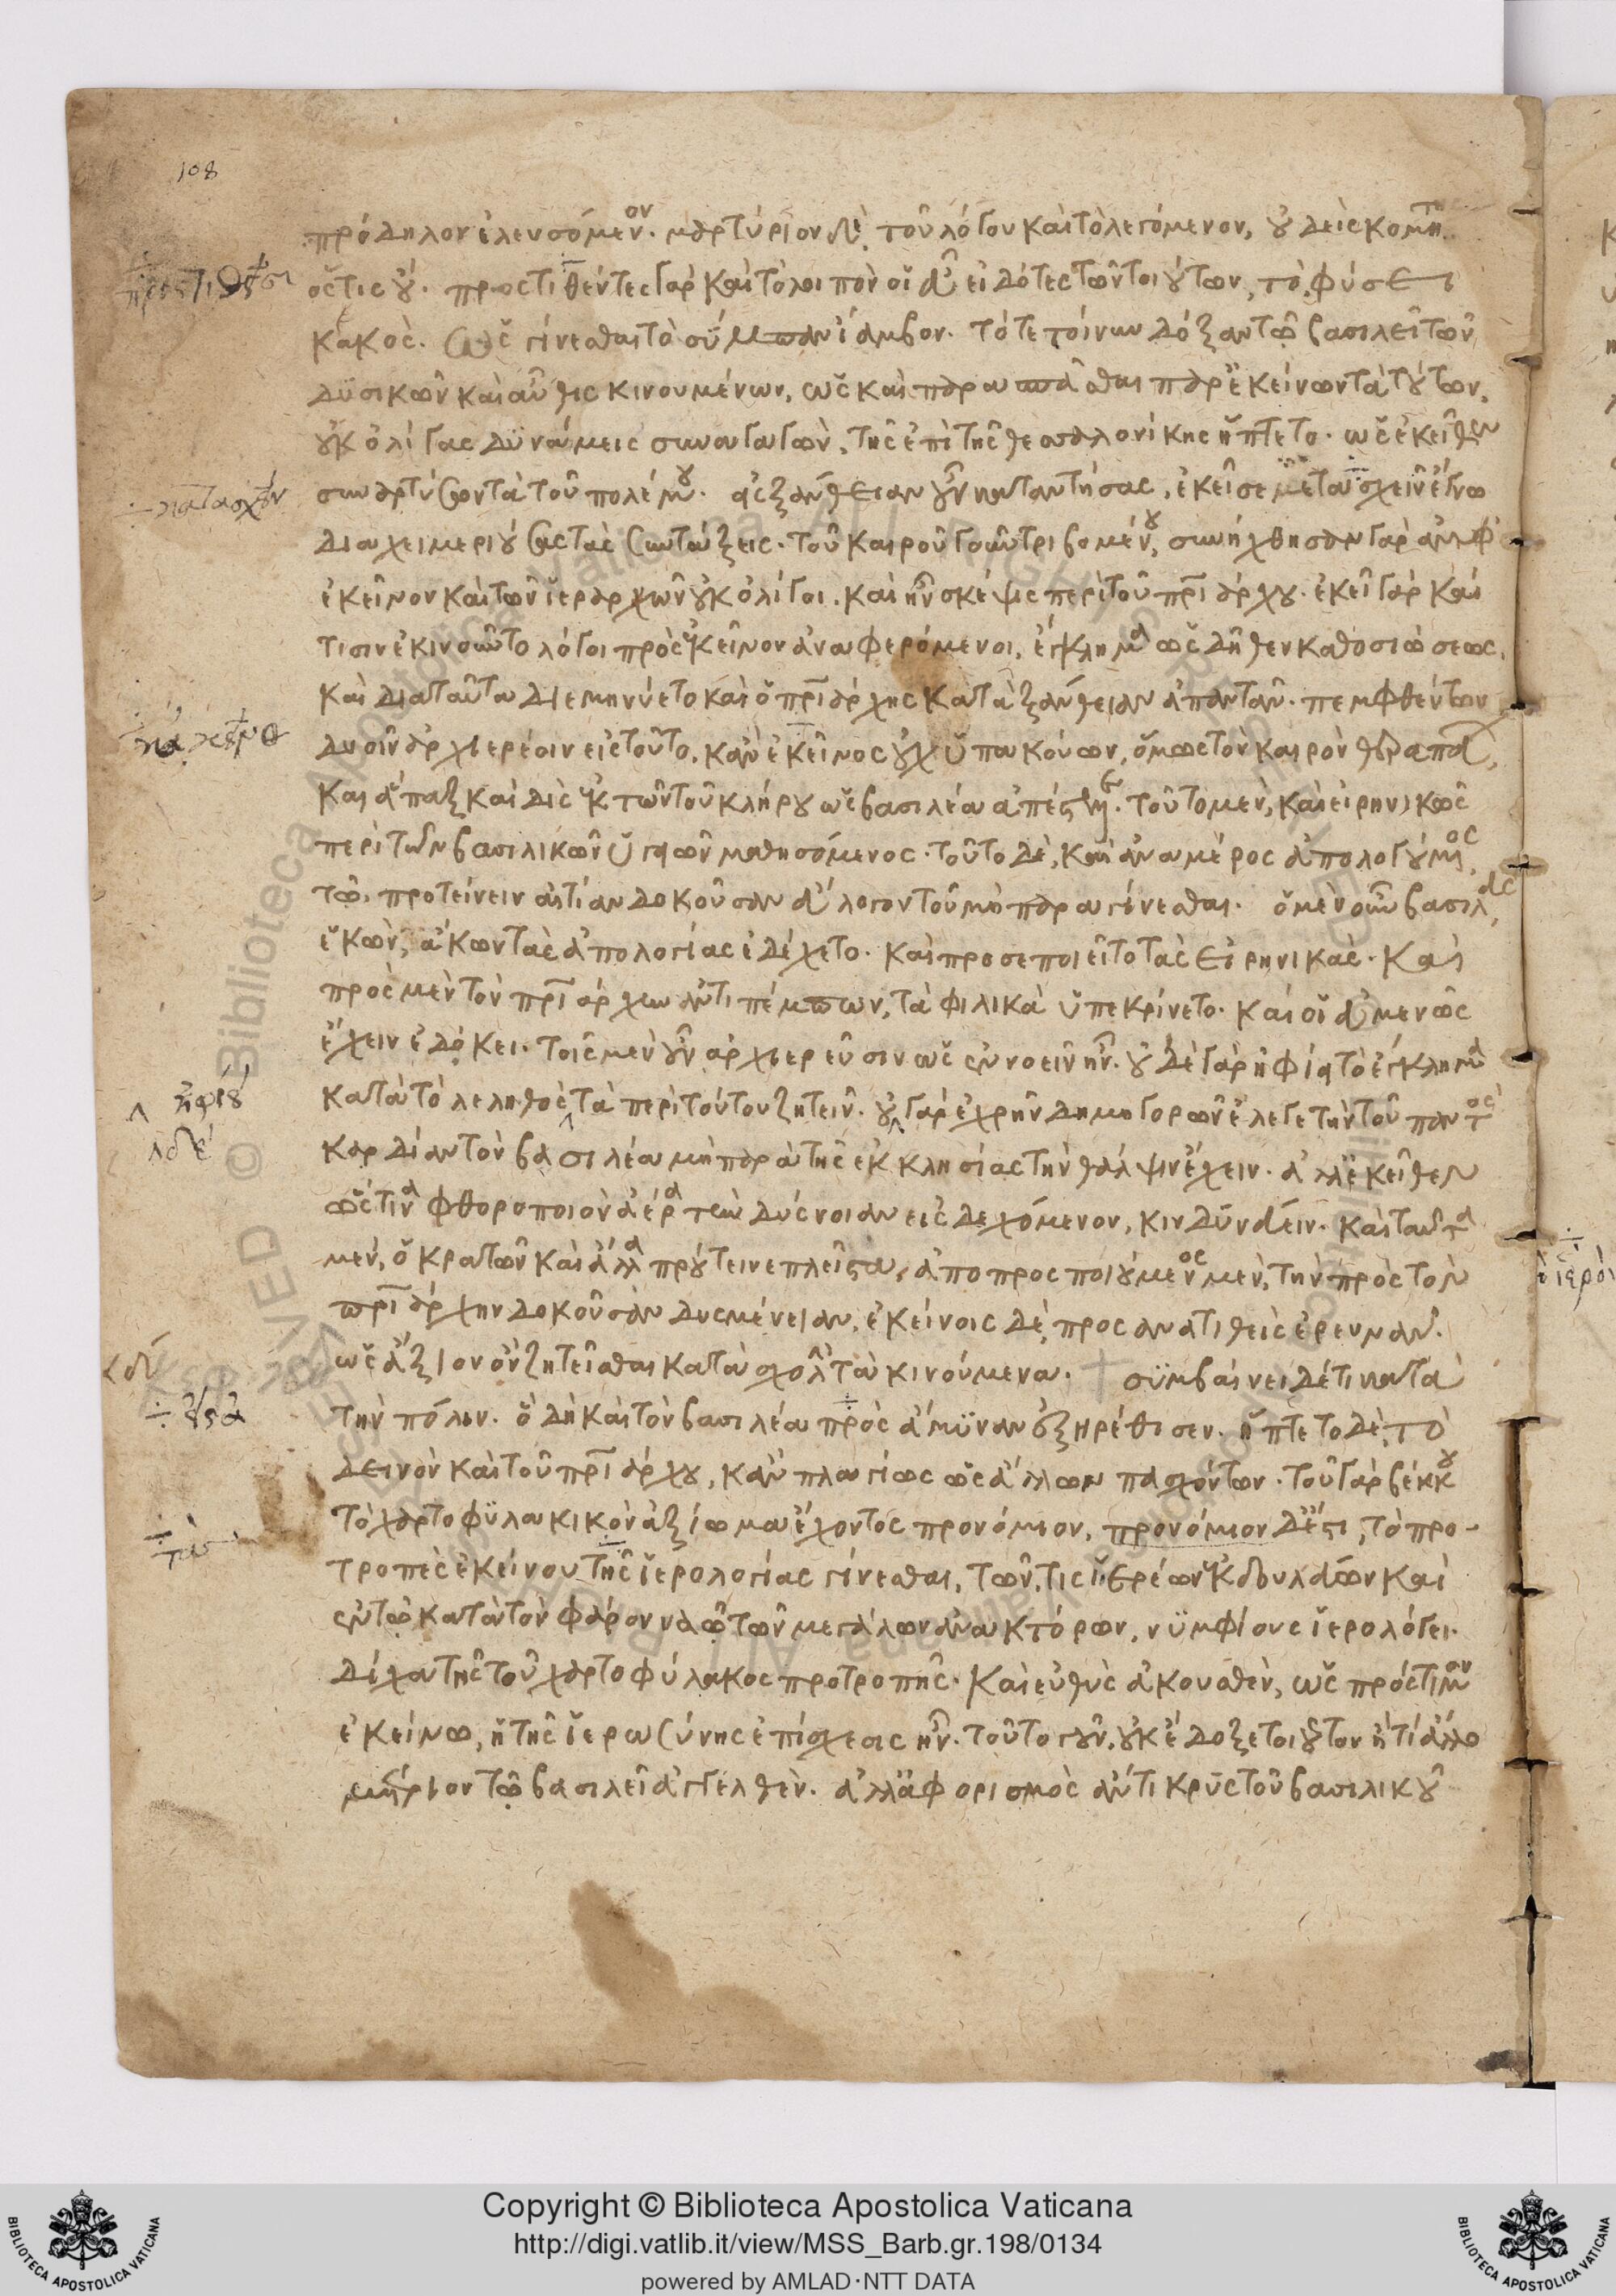 108
πρόδηλον ἐλευσόμενον. μαρτύριον δὲ τοῦ λόγου καὶ τὸ λεγόμενον, οὐδεὶς κομήτης
ὅστις οὐ. προστιθέντες γὰρ καὶ τὸ λοιπὸν οἱ εὖ εἰδότες τῶν τοιούτων, τὸ φύσει
κακός. ὡς γίνεσθαι τὸ σύμπαν ἴαμβον. τότε τοίνυν δόξαν τῷ βασιλεῖ τῶν
δυσικῶν καὶ αὖθις κινουμένων, ὡς καὶ παρασπᾶσθαι παρ' ἐκείνων τὰ τούτων,
οὐκ ὀλίγας δυνάμεις συναγαγών, τῆς ἐπὶ τῆς θεσσαλονίκης ἥπτετο. ὡς ἐκεῖθεν
συναρτύσοντα τοῦ πολέμου. εἰς ξάνθειαν γοῦν καταντήσας, ἐκεῖσε μετασχεῖν ἔγνω
διαχειμεριούσας τὰς συντάξεις. τοῦ καιροῦ γοῦν τριβομένου, συνήχθησαν γὰρ ἀμφ'
ἐκεῖνον καὶ τῶν ἱεραρχῶν οὐκ ὀλίγοι. καὶ ἦν σκέψις περὶ τοῦ πριάρχου. ἐκεῖ γὰρ καί
τισιν ἐκινοῦντο λόγοι πρὸς ἐκεῖνον ἀναφερόμενοι, ἔγκλημα ὡς δῆθεν καθοσιώσεως.
καὶ διὰ ταῦτα διεμηνύετο καὶ ὁ πριάρχης κατὰ ξάνθειαν ἀπαντᾶν. πεμφθέντων
δυοῖν ἀρχιερέοιν εἰς τοῦτο. κἂν ἐκεῖνος οὐχ ὑπακούων, ὅμως τὸν καιρὸν θεραπεύων,
καὶ ἅπαξ καὶ δὶς ἐκ τῶν τοῦ κλήρου ὡς βασιλέα ἀπέστελλε. τοῦτο μὲν, καὶ εἰρηνικῶς
περὶ τῶν βασιλικῶν ὑγιειῶν μαθησόμενος. τοῦτο δὲ, καὶ ἀναμέρος ἀπολογούμενος,
τῷ προτείνειν αἰτίαν δοκοῦσαν εὔλογον τοῦ μὴ παραγίνεσθαι. ὁ μὲν οὖν βασιλεὺς,
ἑκὼν, ἄκων τὰς ἀπολογίας ἐδέχετο. καὶ προσεποιεῖτο τὰς εἰρηνικάς. καὶ
πρὸς μὲν τὸν πριάρχην ἀντιπέμπων, τὰ φιλικὰ ὑπεκρίνετο. καὶ οἱ εὐμενῶς
ἔχειν ἐδόκει. τοῖς μὲν γοῦν ἀρχιερεῦσιν ὡς εὐνοεῖν ἦν. οὐδὲ γὰρ ἠφίει τὸ ἔγκλημα
κατὰ τὸ λεληθὸς τὰ περὶ τούτου ζητεῖν. οὐ γὰρ ἐχρῆν δημηγορῶν ἔλεγε τὴν τοῦ παντὸς
καρδίαν τὸν βασιλέα μὴ παρὰ τῆς ἐκκλησίας τὴν θάλψιν ἔχειν. ἀλλ' ἐκεῖθεν
ὥς τινα φθοροποιὸν ἀέρα τὴν δύσνοιαν εἰσδεχόμενον, κινδυνεύειν. καὶ ταῦτα
μὲν, ὁ κρατῶν καὶ ἄλλα προύτεινε πλεῖστα, ἀποπροσποιούμενος μὲν, τὴν πρὸς τὸν
πριάρχην δοκοῦσαν δυσμένειαν, ἐκείνοις δὲ, προσανατιθεὶς ἐρευνᾶν.
ὡς ἄξιον ὂν ζητεῖσθαι κατὰ σχολὴν τὰ κινούμενα. † συμβαίνει δέ τι κατὰ
τὴν πόλιν. ὃ δὴ καὶ τὸν βασιλέα πρὸς ἄμυναν ἐξηρέθισεν. ἥπτετο δὲ, τὸ
δεινὸν καὶ τοῦ πριάρχου, κἂν πλαγίως ὡς ἄλλων πασχόντων. τοῦ γὰρ βέκκου
τὸ χαρτοφυλακικὸν ἀξίωμα ἔχοντος προνόμιον, προνόμιον δέ ἐστι, τὸ προ-
τροπαῖς ἐκείνου τῆς ἱερολογίας γίνεσθαι, τῶν τις ἱερέων ἐκδουλεύων καὶ
ἐν τῷ κατὰ τὸν φάρον ναῷ τῶν μεγάλων ἀνακτόρων, νυμφίους ἱερολόγει.
δίχα τῆς τοῦ χαρτοφύλακος προτροπῆς. καὶ εὐθὺς ἀκουσθὲν, ὡς πρόστιμον
ἐκείνῳ, ἡ τῆς ἱερωσύνης ἐπίσχεσις ἦν. τοῦτο γοῦν, οὐκ ἔδοξε τοιοῦτον ἤ τι ἄλλο
μυστήριον τῷ βασιλεῖ ἀγγελθὲν. ἀλλ' ἀφορισμὸς ἀντικρὺς τοῦ βασιλικοῦ
Copyright © Biblioteca Apostolica Vaticana
http://digi.vatlib.it/view/MSS_Barb.gr.198/0134
powered by AMLAD·NTT DATA
BIBLIOTECA APOSTOLICA VATICANA
BIBLIOTECA APOSTOLICA VATICANA